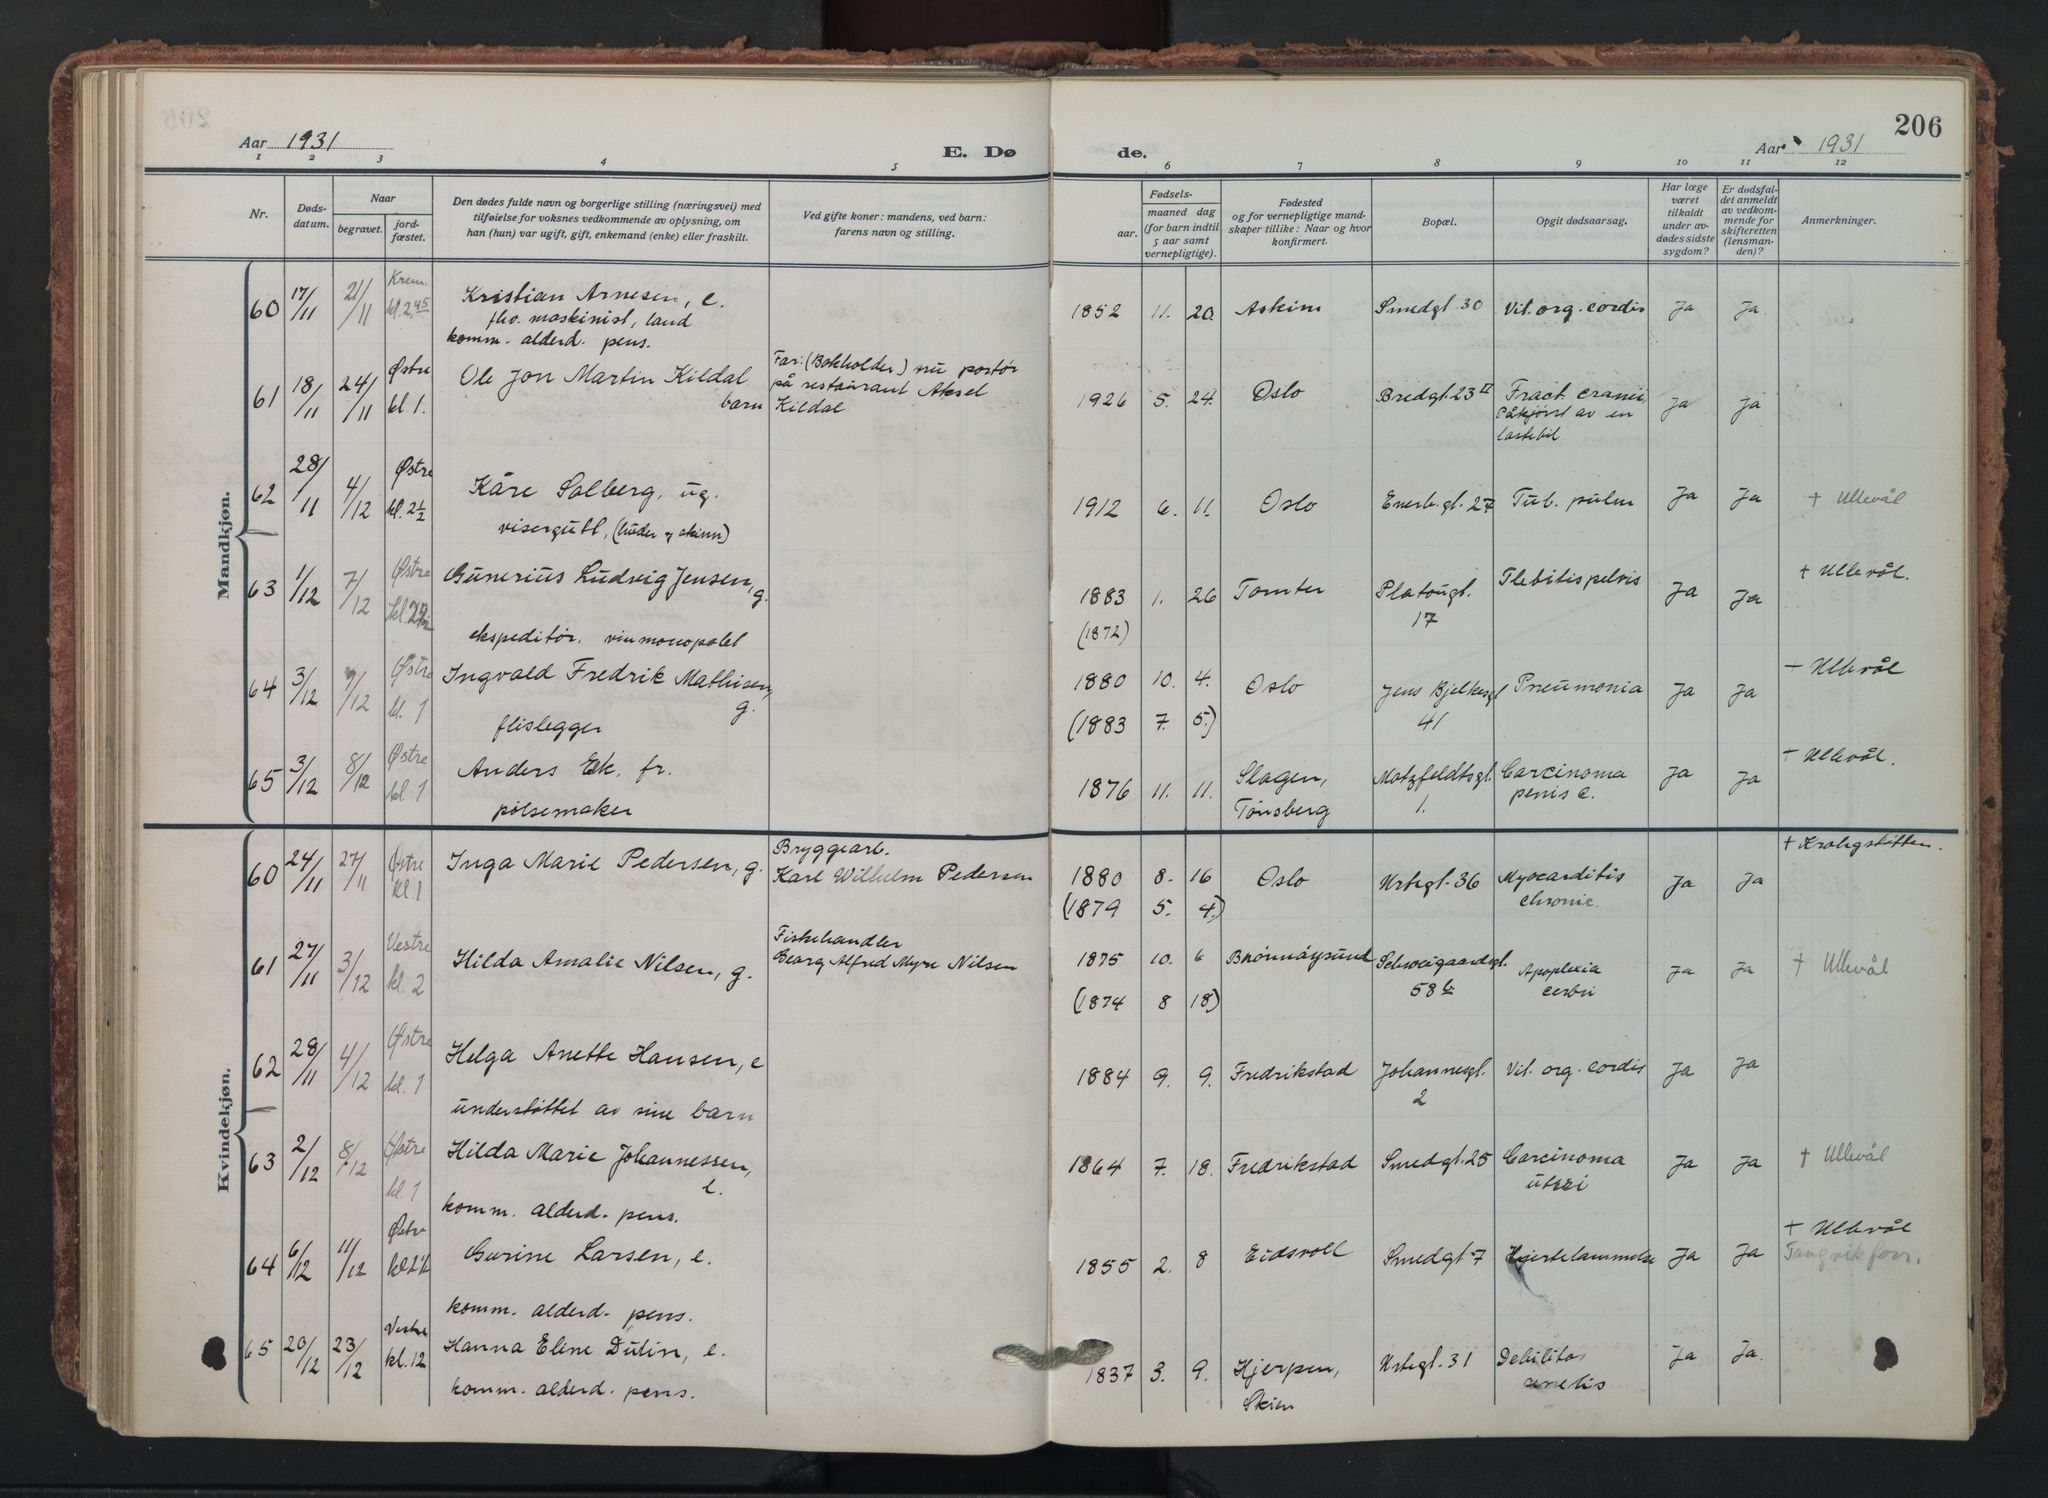 206
Aar 1931
E. Dø
de.
Aar 1931
1 2 3 4 5 6 7 8 9 10 11 12
Nr.
Døds-
datum.
Naar
begravet.
jord-
fæstet.
Den dødes fulde navn og borgerlige stilling (næringsvei) med
tilføielse for voksnes vedkommende av oplysning, om
han (hun) var ugift, gift, enkemand (enke) eller fraskilt.
Ved gifte koner: mandens, ved barn:
farens navn og stilling.
Fødsels-
aar.
maaned dag
(for barn indtil
5 aar samt
vernepligtige).
Fødested
og for vernepligtige mand-
skaper tillike: Naar og hvor
konfirmert.
Bopæl.
Opgit dødsaarsag.
Har læge
været
tilkaldt
under av-
dødes sidste
sygdom?
Er dødsfal-
det anmeldt
av vedkom-
mende for
skifteretten
(lensman-
den)?
Anmerkninger.
Mandkjøn.
60 17/11 21/11 Krem. kl. 2.45 Kristian Arnesen, e. 1852 11. 20. Askim Smedgt. 30 Vit. org. cordis Ja Ja
fhv. maskinist, land
komm. alderd. pens.
61 18/11 24/11 Østre kl 1. Ole Jon Martin Kildal Far: (Bokholder) nu portør 1926 5. 24. Oslo Bredgt. 23 II Fract. cranii, Ja Ja
barn på restaurant Aksel Påkjørt av en
Kildal lastebil
62 28/11 4/12 Østre kl. 2½ Kåre Solberg, ug. 1912 6. 11. Oslo Enerh.gt. 27 Tub. pulm Ja Ja + Ullevål
visergutt, (huder og skinn)
63 1/12 7/12 Østre Gunerius Ludvig Jensen, g. 1883 1. 26 Tomter Platougt. Flebitis pelvis Ja Ja + Ullevål.
(1872) 17
ekspeditør. vinmonopolet
64 3/12 9/12 Østre kl. 1 Ingvald Fredrik Mathisen, g. 1880 10. 4. Oslo Jens Bjelkesgt Pneumonia Ja Ja + Ullevål
(1883 7. 5.) 41
flislegger
65 3/12 8/12 Østre kl. 1 Anders Ek, fr. 1876 11. 11. Slagen, Motzfeldtsgt. Carcinoma Ja Ja + Ullevål.
pølsemaker Tønsberg 1. penis c.
Kvindekjøn.
60 24/11 27/11 Østre kl 1 Inga Marie Pedersen, g. Bryggearb. 1880 8. 16 Oslo Urtegt. 36 Myocarditis Ja Ja + Krohgstøtten.
Karl Wilhelm Pedersen (1879 5. 4.) chronic.
61 27/11 3/12 Vestre kl. 2 Hilda Amalie Nilsen, g. Fiskehandler 1875 10. 6 Brønnøysund Schweigaardsgt. Apoplexia Ja Ja + Ullevål
Georg Alfred Myre Nilsen (1874 8 18) 58 b. cerebri
62 28/11 4/12 Østre kl. 1 Helga Anette Hansen, e 1884 9. 9. Fredrikstad Johannesgt. Vit. org. cordis Ja Ja
understøttet av sine barn 2
63 2/12 8/12 Østre kl. 1 Hilda Marie Johannessen, e. 1864 7. 18. Fredrikstad Smedgt. 25 Carcinoma Ja Ja + Ullevål
komm. alderd. pens. uteri
64 6/12 11/12 Østre Gurine Larsen, e. 1855 2. 8 Eidsvoll Smedgt 7 Hjertelammelse Ja Ja + Ullevål
komm. alderd. pens.
65 20/12 23/12 Vestre kl. 12 Hanna Eline Dutin, e. 1837 3. 9. Hjerpen, Urtegt. 31 Debilitas Ja Ja.
komm. alderd. pens. Skien senilis